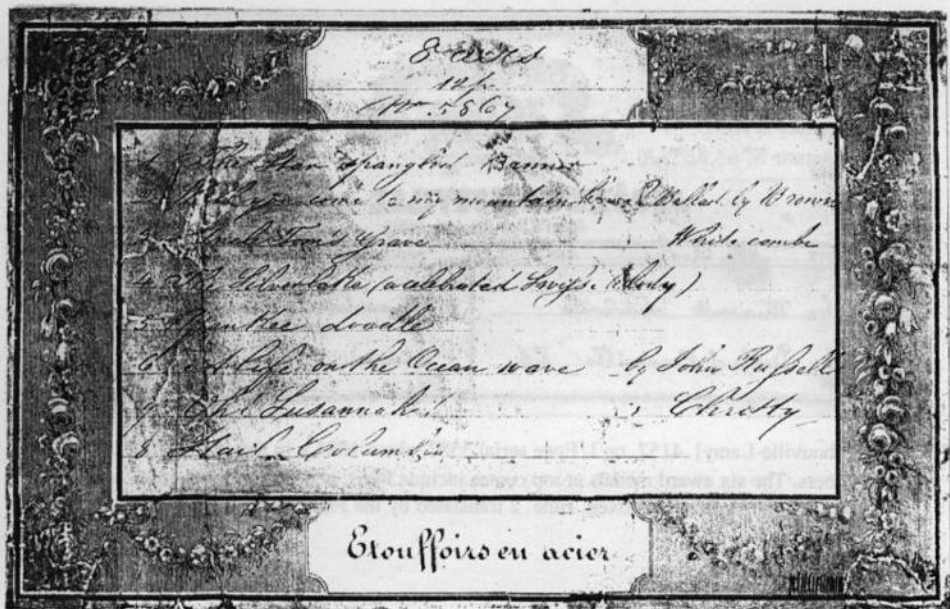 8 airs
Nº 5867
1 The Star Spangled Banner
come to my mountain home Ballad by Brown
3 Uncle Tom's Grave Whitecombe
4 The Silver lake (a celebrated Swiss Melody)
5 Yankee doodle
6 A Life on the Ocean wave by John Russell
7 Oh! Susannah " Christy
8 Hail Columbia
Etouffoirs en acier